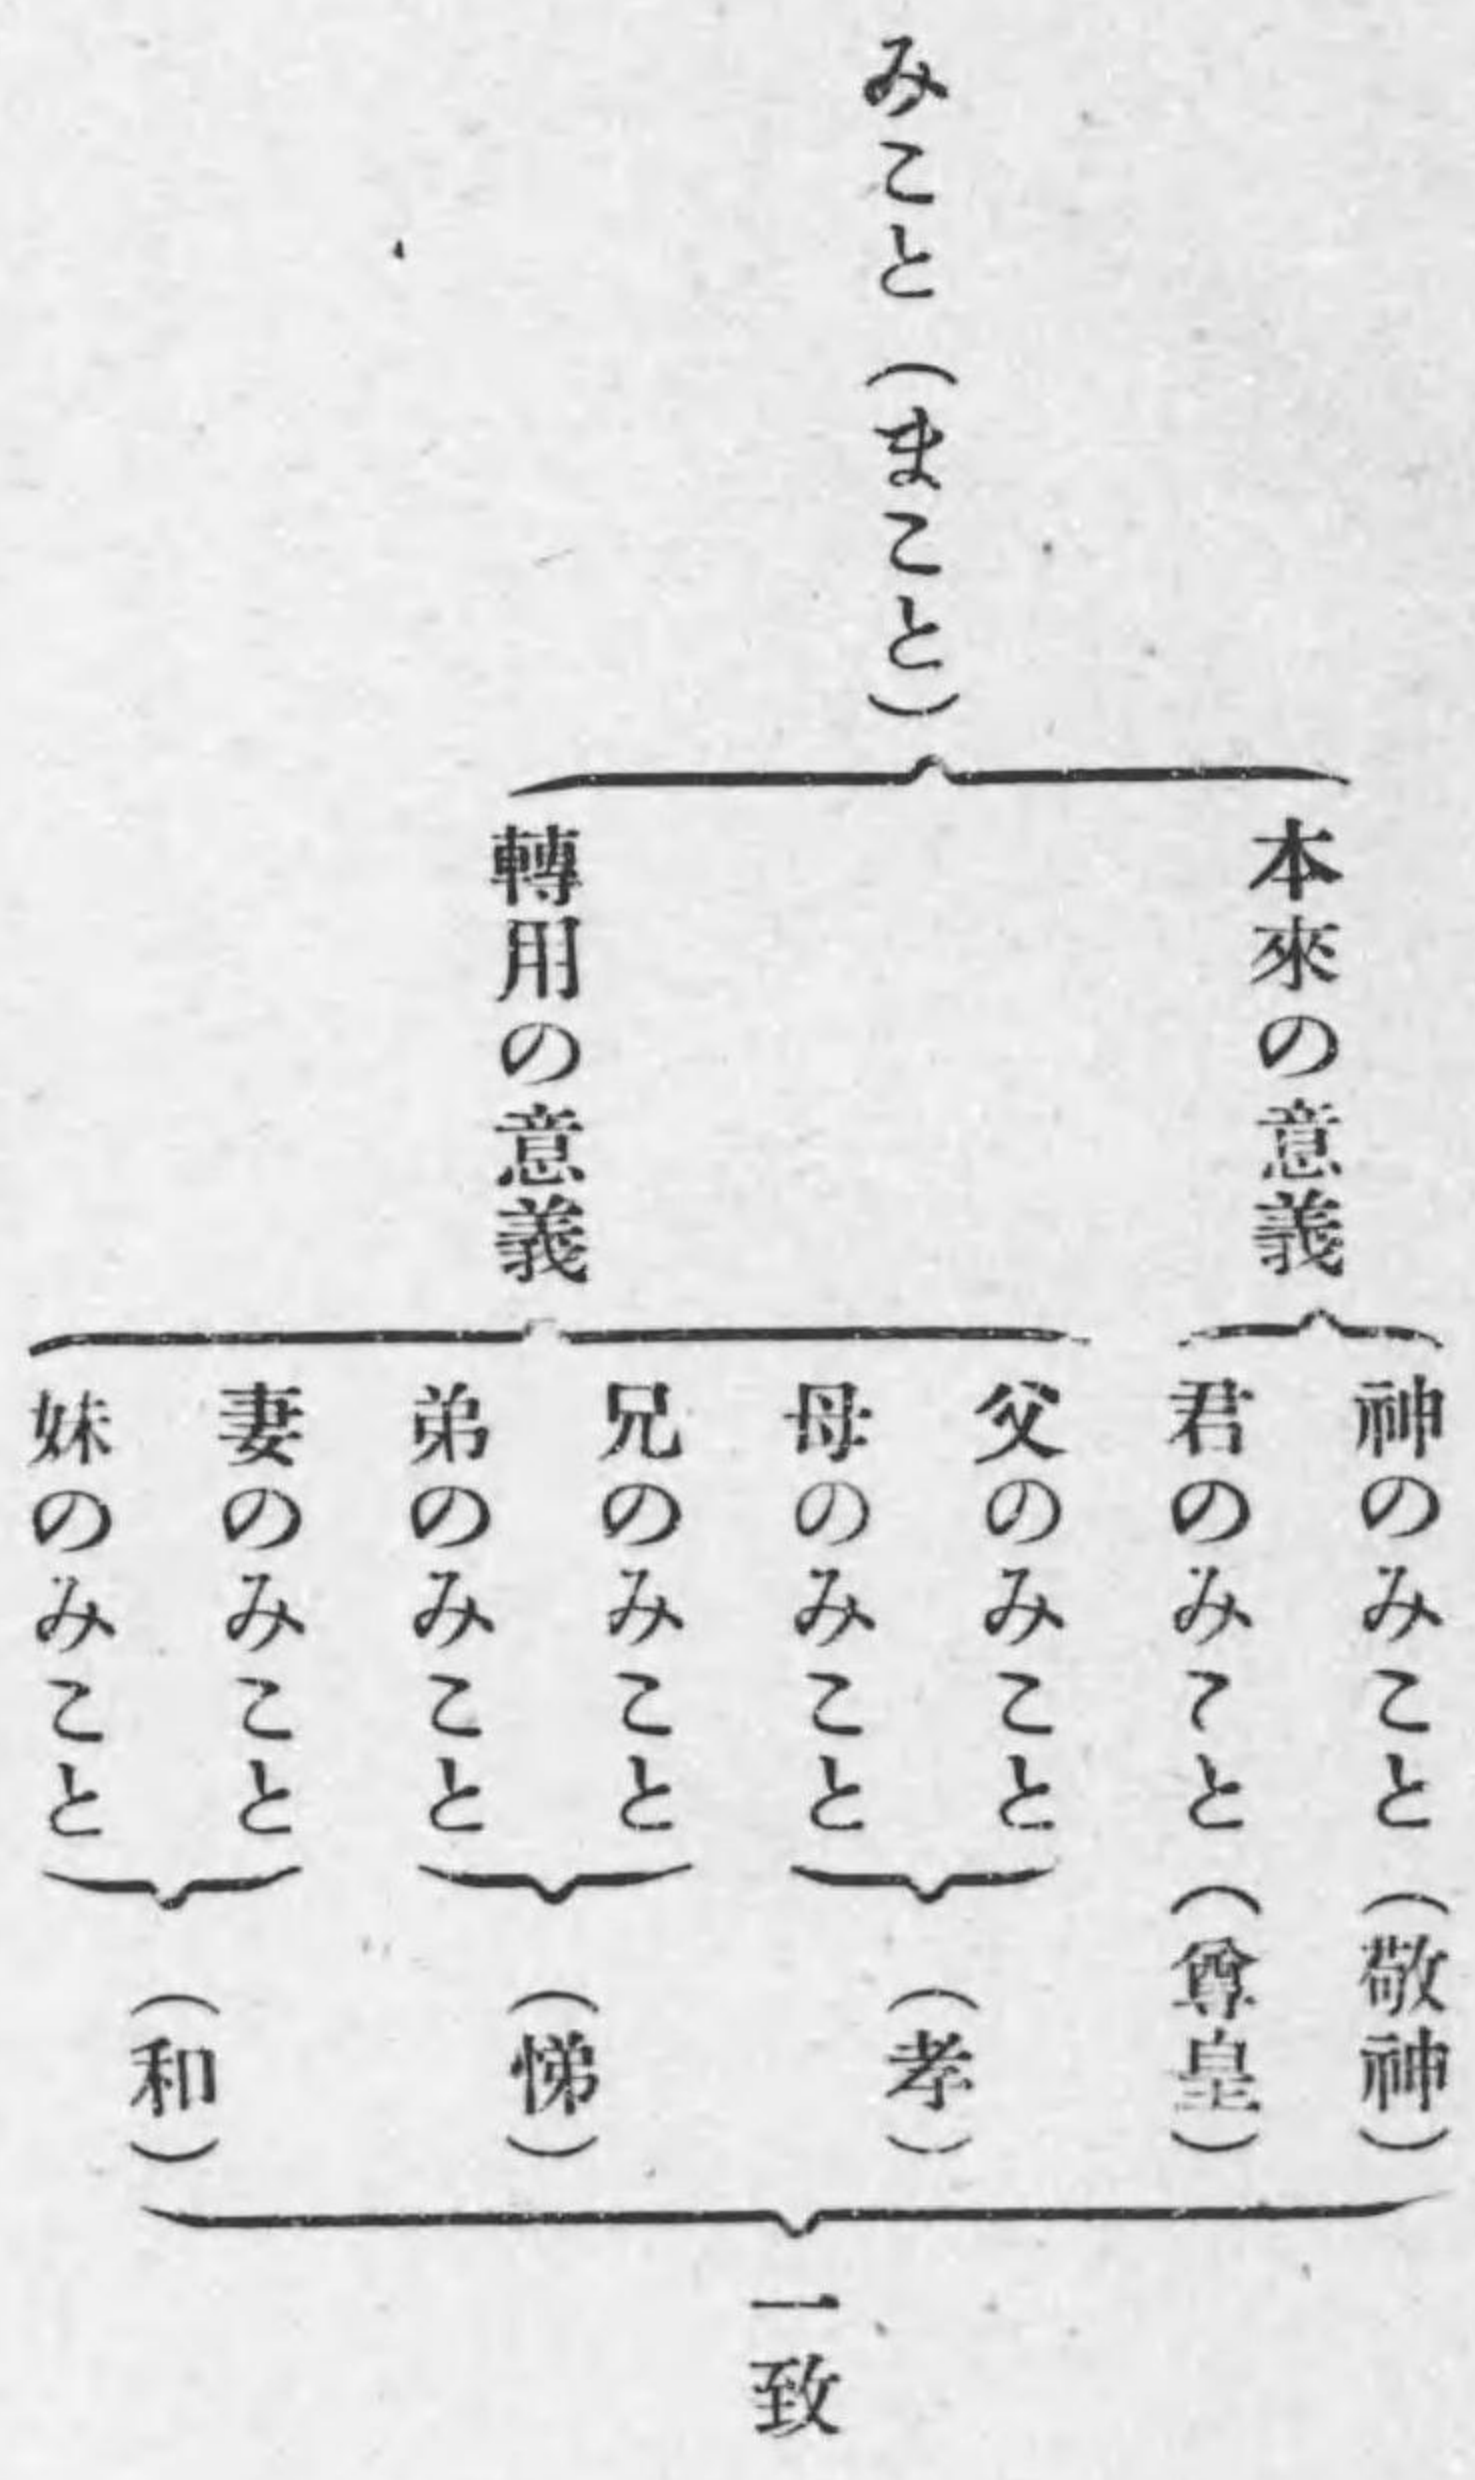 みこと（まこと）
本來の意義
神のみこと（敬神）
君のみこと（尊皇）
轉用の意義
父のみこと
母のみこと
（孝）
兄のみこと
弟のみこと
（悌）
妻のみこと
妹のみこと
（和）
一致